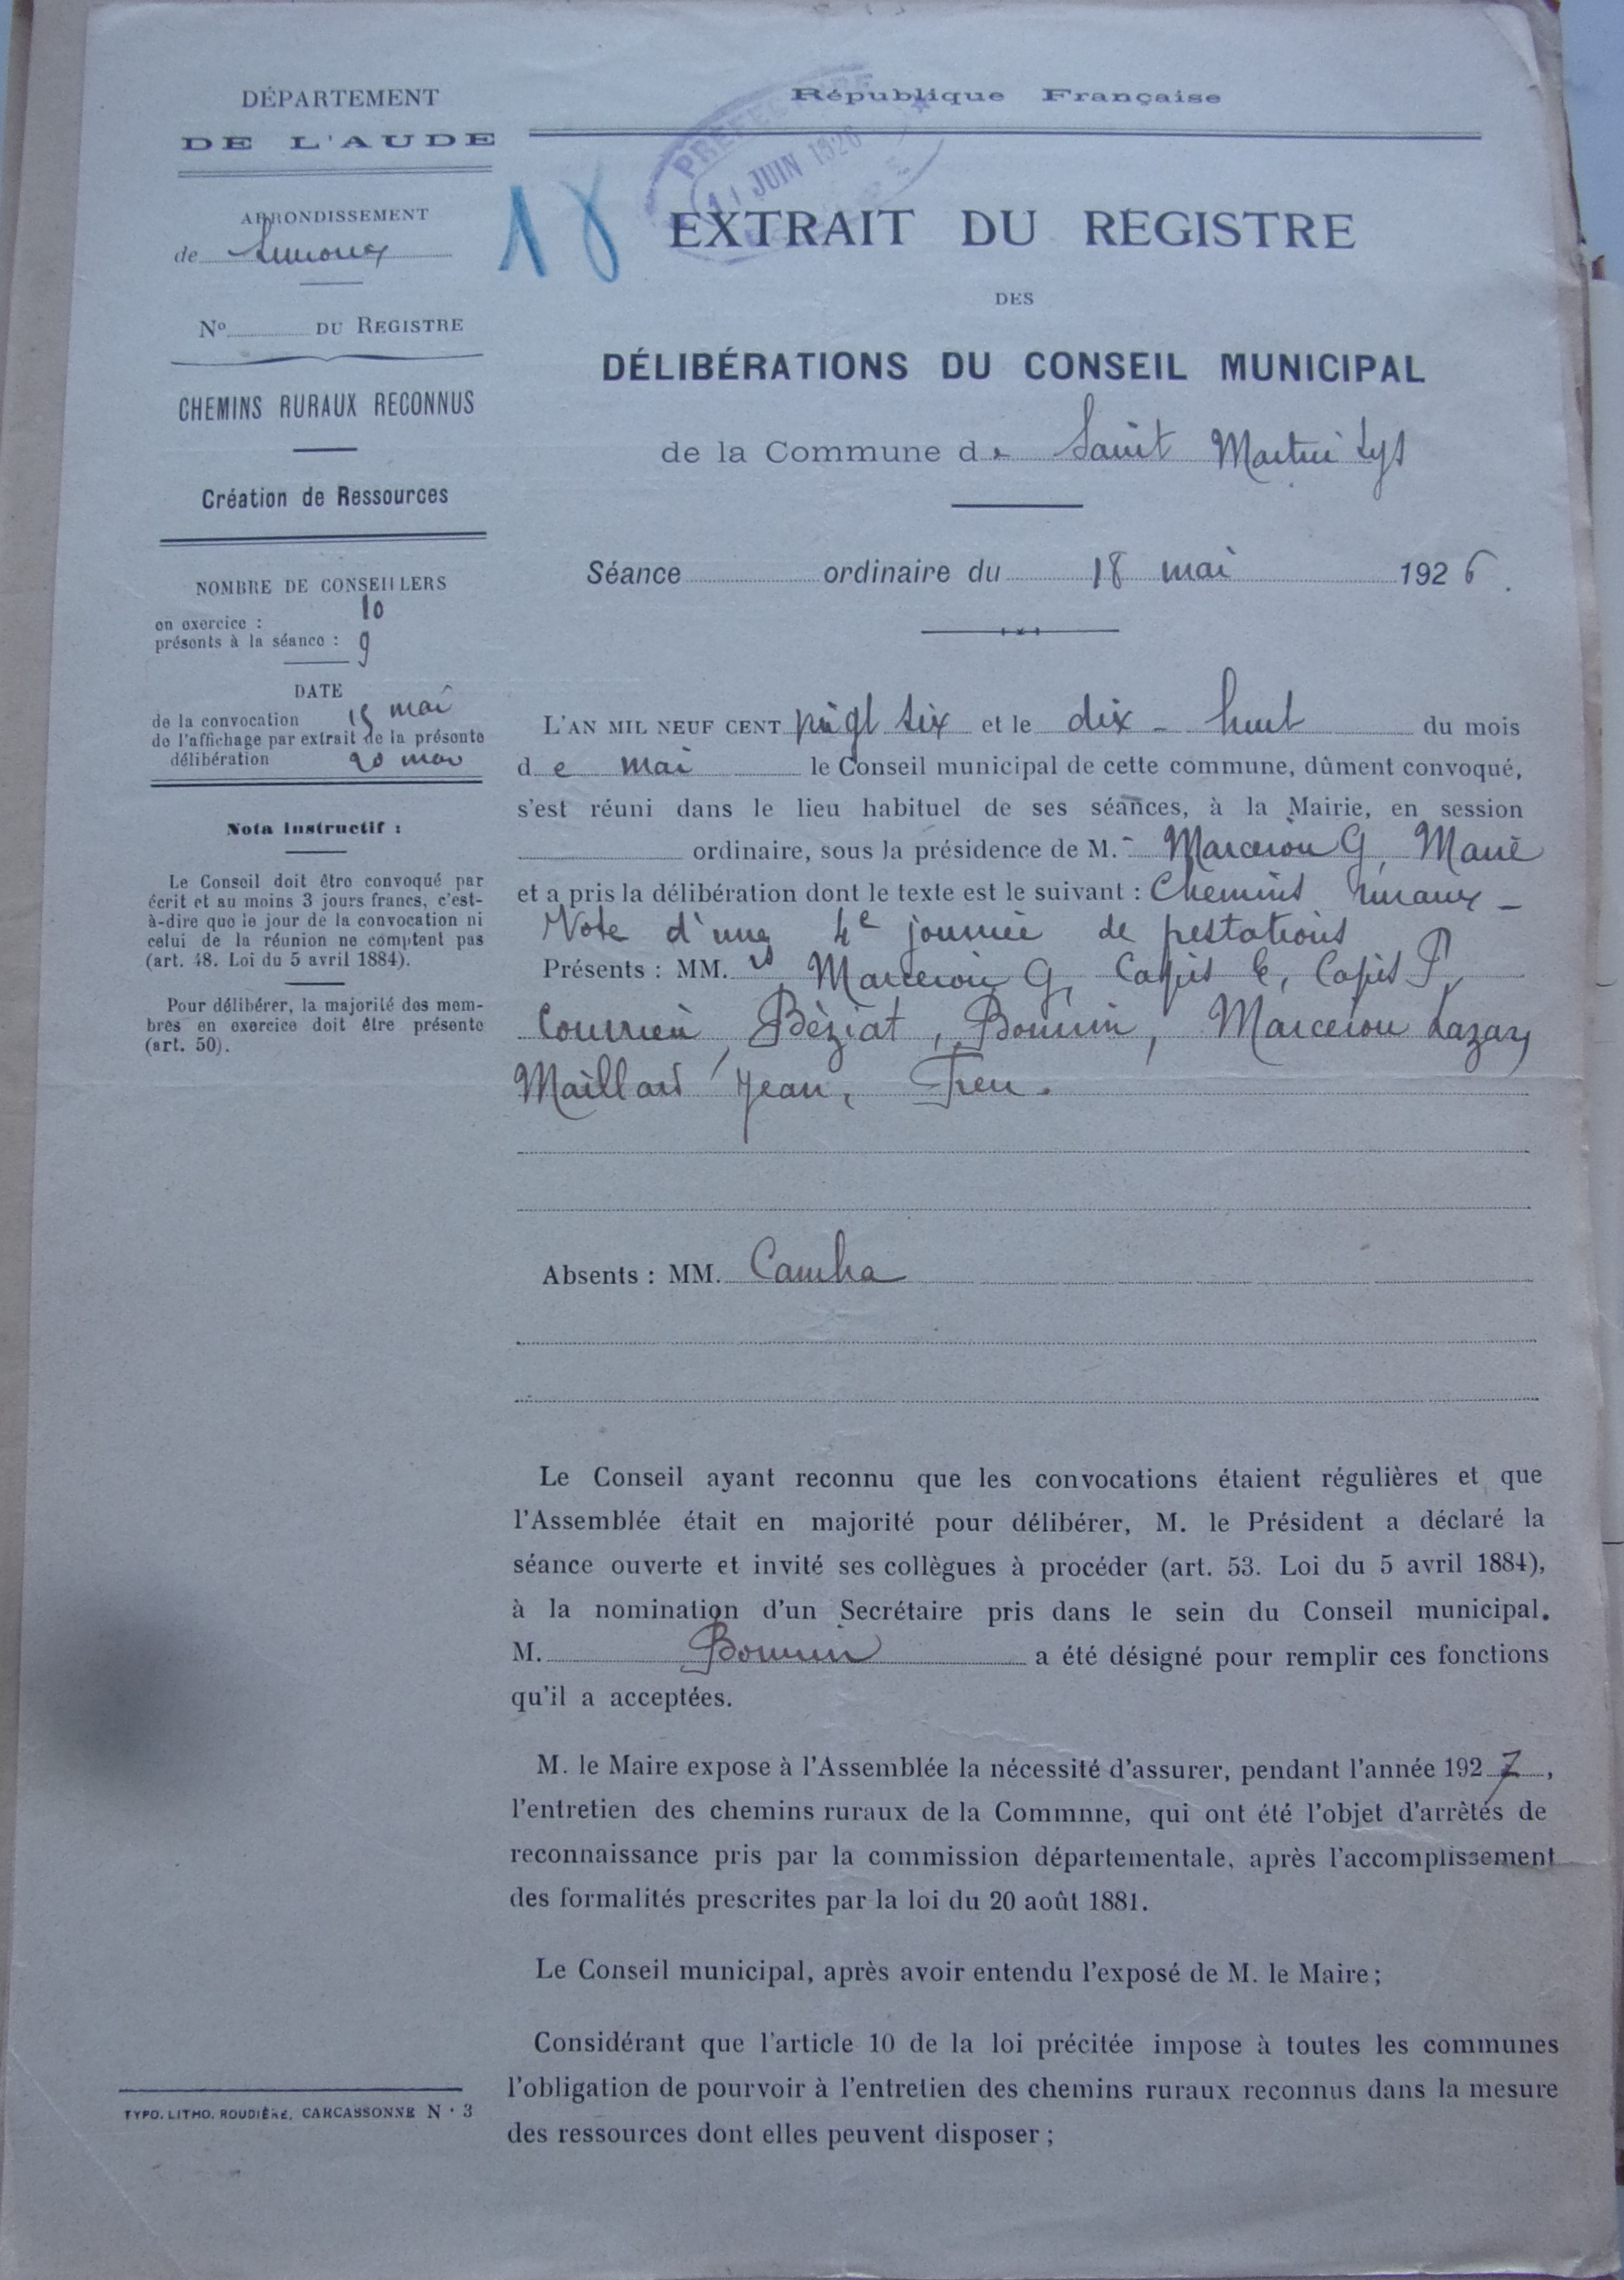 DÉPARTEMENT
DE L'AUDE
ARRONDISSEMENT
de Limoux
No DU REGISTRE
CHEMINS RURAUX RECONNUS
Création de Ressources
NOMBRE DE CONSEILLERS
en exercice : 10
présents à la séance : 9
DATE
de la convocation 15 mai
de l'affichage par extrait de la présente
délibération 20 mai
Nota Instructif :
Le Conseil doit être convoqué par
écrit et au moins 3 jours francs, c'est-
à-dire que le jour de la convocation ni
celui de la réunion ne comptent pas
(art. 48. Loi du 5 avril 1884).
Pour délibérer, la majorité des mem-
bres en exercice doit être présente
(art. 50).
TYPO. LITHO. ROUDIÈRE, CARCASSONNE N · 3
République Française
PRÉFECTURE
11 JUIN 1926
18
EXTRAIT DU REGISTRE
DES
DÉLIBÉRATIONS DU CONSEIL MUNICIPAL
de la Commune de Saint Martin Lys
Séance ordinaire du 18 mai 1926.
L'AN MIL NEUF CENT vingt six et le dix-huit du mois
de mai le Conseil municipal de cette commune, dûment convoqué,
s'est réuni dans le lieu habituel de ses séances, à la Mairie, en session
ordinaire, sous la présidence de M. Marcerou G, Maire
et a pris la délibération dont le texte est le suivant : Chemins ruraux -
Vote d'une 4e journée de prestations
Présents : MM. rs Marcerou G, Capis C, Capis P,
Béziat, Bonnin, Marcerou Lazare
Maillard Jean,
Absents : MM.
Le Conseil ayant reconnu que les convocations étaient régulières et que
l'Assemblée était en majorité pour délibérer, M. le Président a déclaré la
séance ouverte et invité ses collègues à procéder (art. 53. Loi du 5 avril 1884),
à la nomination d'un Secrétaire pris dans le sein du Conseil municipal.
M. Bonnin a été désigné pour remplir ces fonctions
qu'il a acceptées.
M. le Maire expose à l'Assemblée la nécessité d'assurer, pendant l'année 1927,
l'entretien des chemins ruraux de la Commnne, qui ont été l'objet d'arrêtés de
reconnaissance pris par la commission départementale, après l'accomplissement
des formalités prescrites par la loi du 20 août 1881.
Le Conseil municipal, après avoir entendu l'exposé de M. le Maire;
Considérant que l'article 10 de la loi précitée impose à toutes les communes
l'obligation de pourvoir à l'entretien des chemins ruraux reconnus dans la mesure
des ressources dont elles peuvent disposer ;